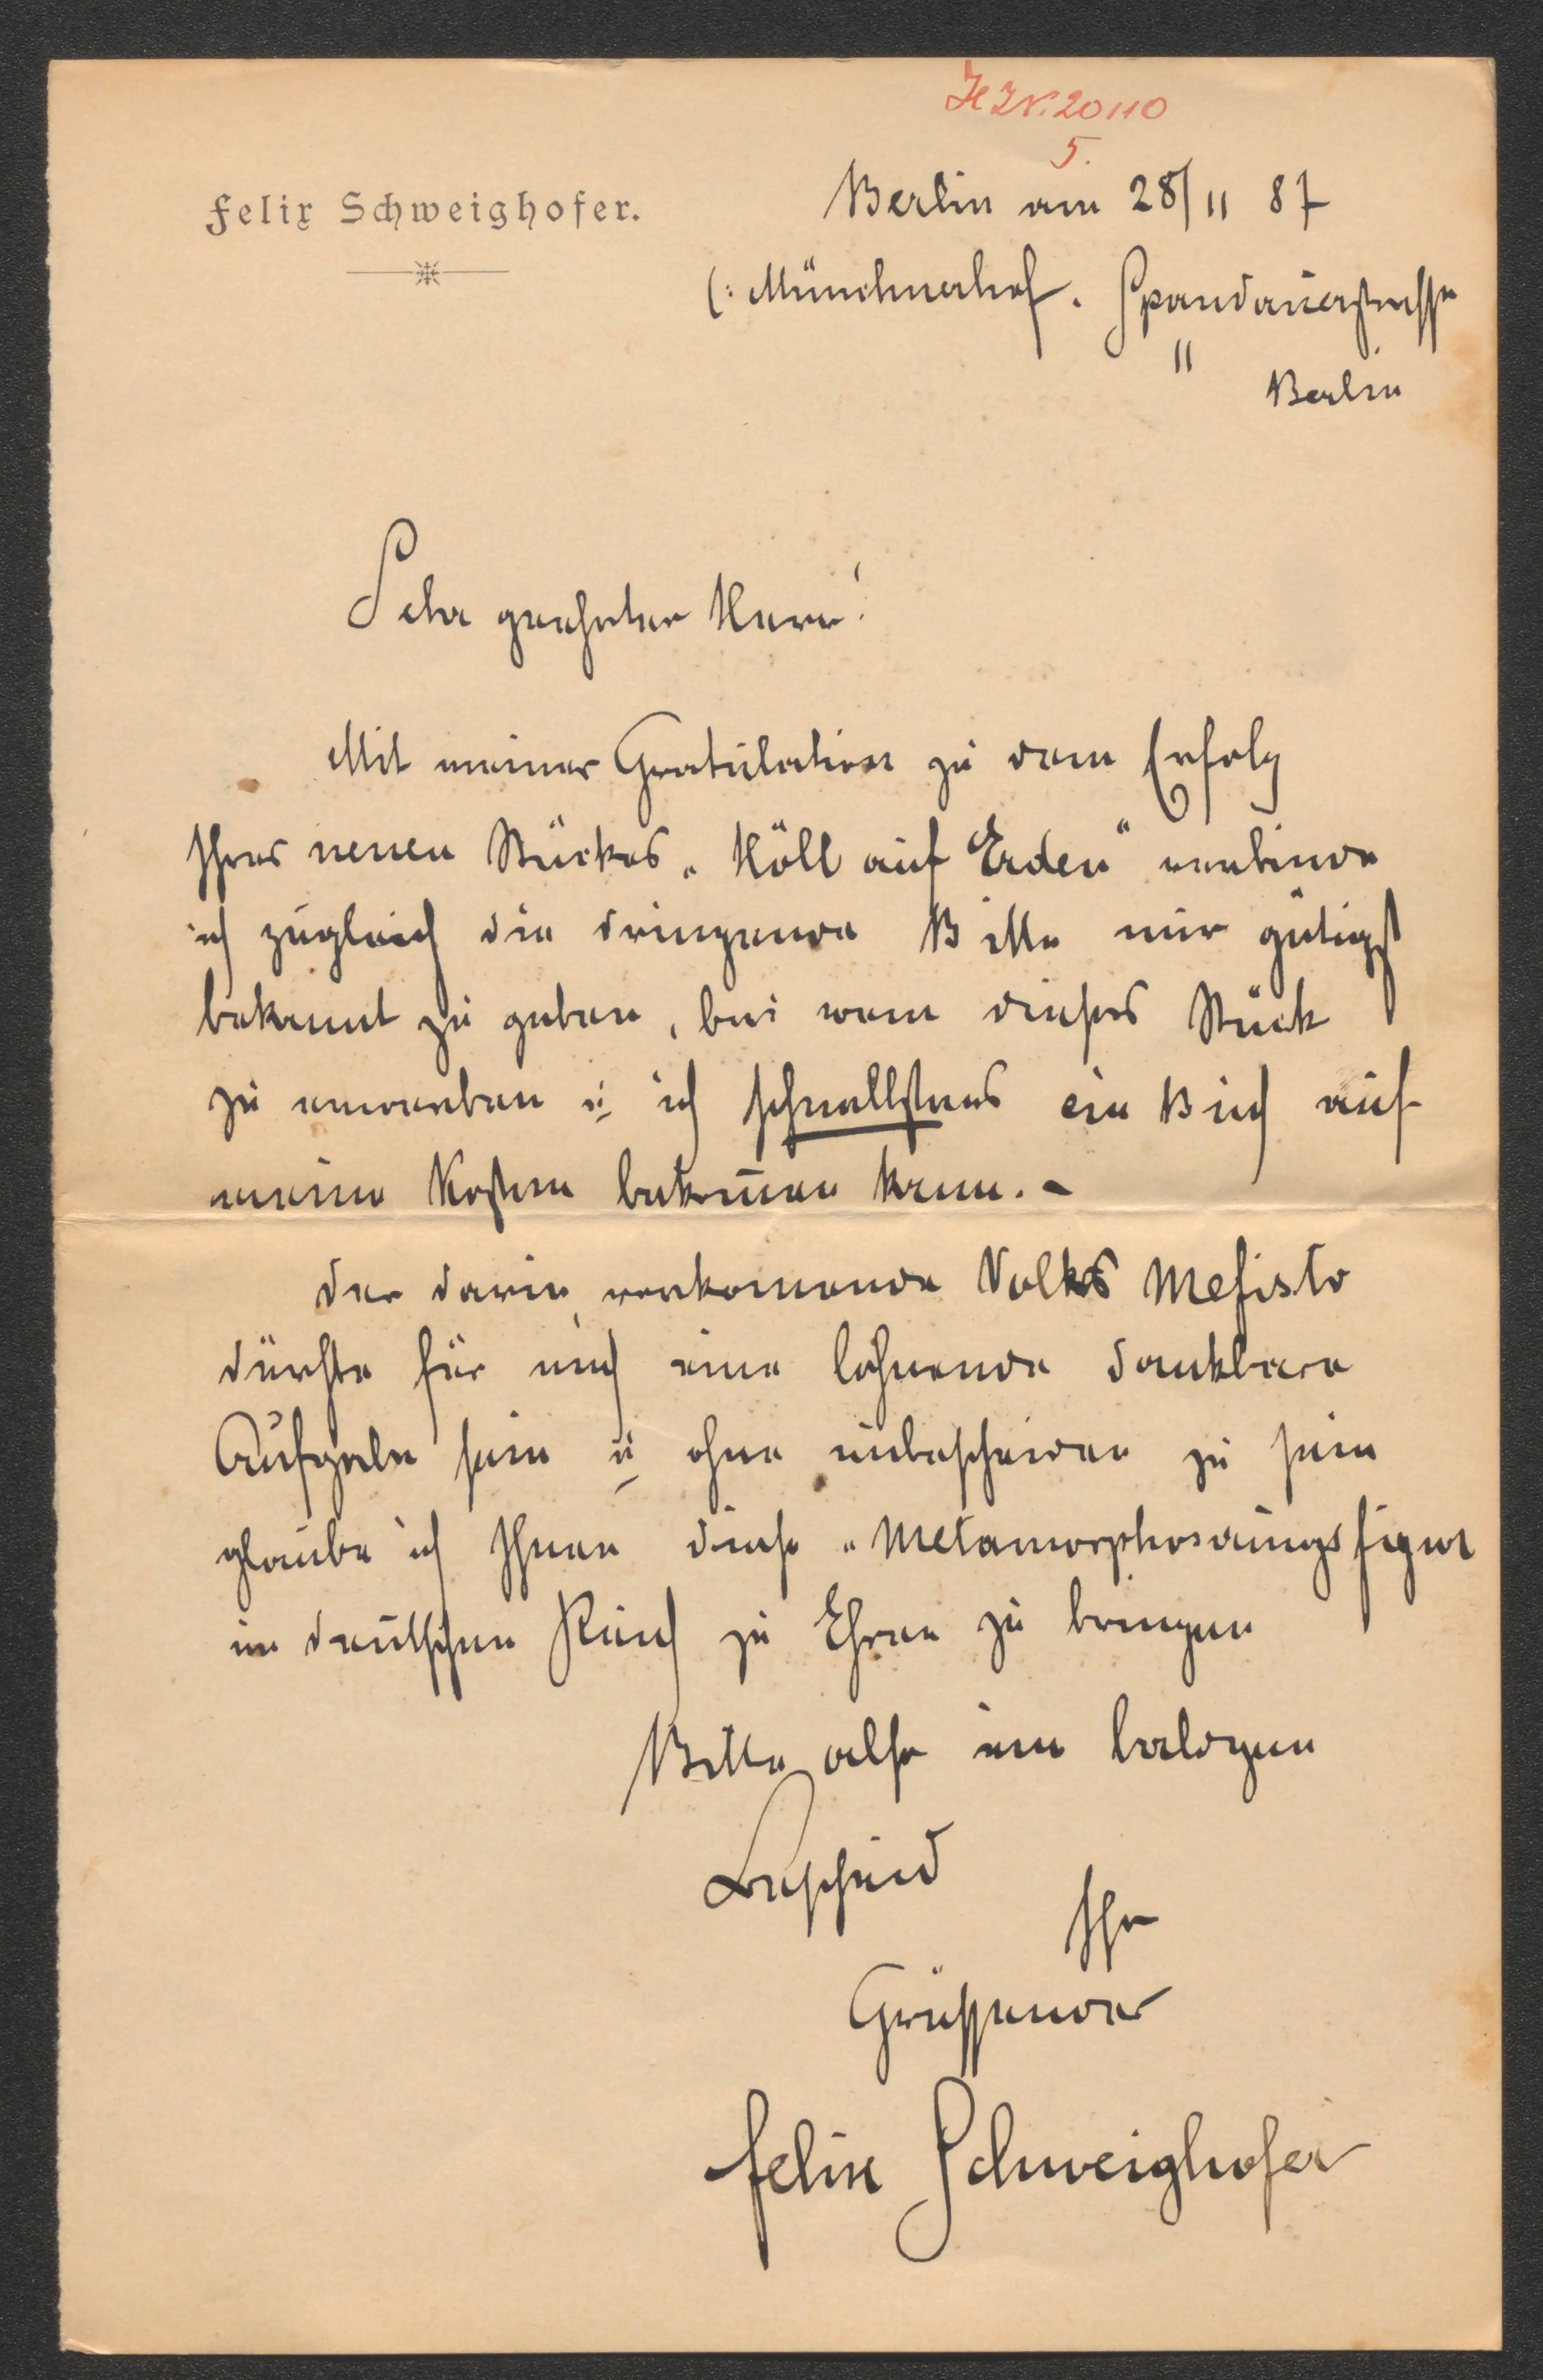 H.I.N. 20110
5.
Felix Schweighofer.
Berlin am 28/11 87
(: Münchnerhof. Spandauerstrasse
11 Berlin
Sehr geehrter Herr!
Mit meiner Gratulation zu dem Erfolg
Ihres neuen Stückes „Höll auf Erden" verbinde
ich zugleich die dringende Bitte mir gütigst
bekannt zu geben, bei wem dieses Stück
zu erwerben u ich schnellstens ein Buch auf
meine Kosten bekom̅en kann. –
Der darin vorkomende Volks Mefisto
dürfte für mich eine lohnende dankbare
Aufgabe sein u ohne unbescheiden zu sein
glaube ich Ihnen diese „Metamorphosirungsfigur
im deutschen Reich zu Ehren zu bringen
Bitte also um baldgen
Bescheid
Ihr
Grüssender
Felix Schweighofer